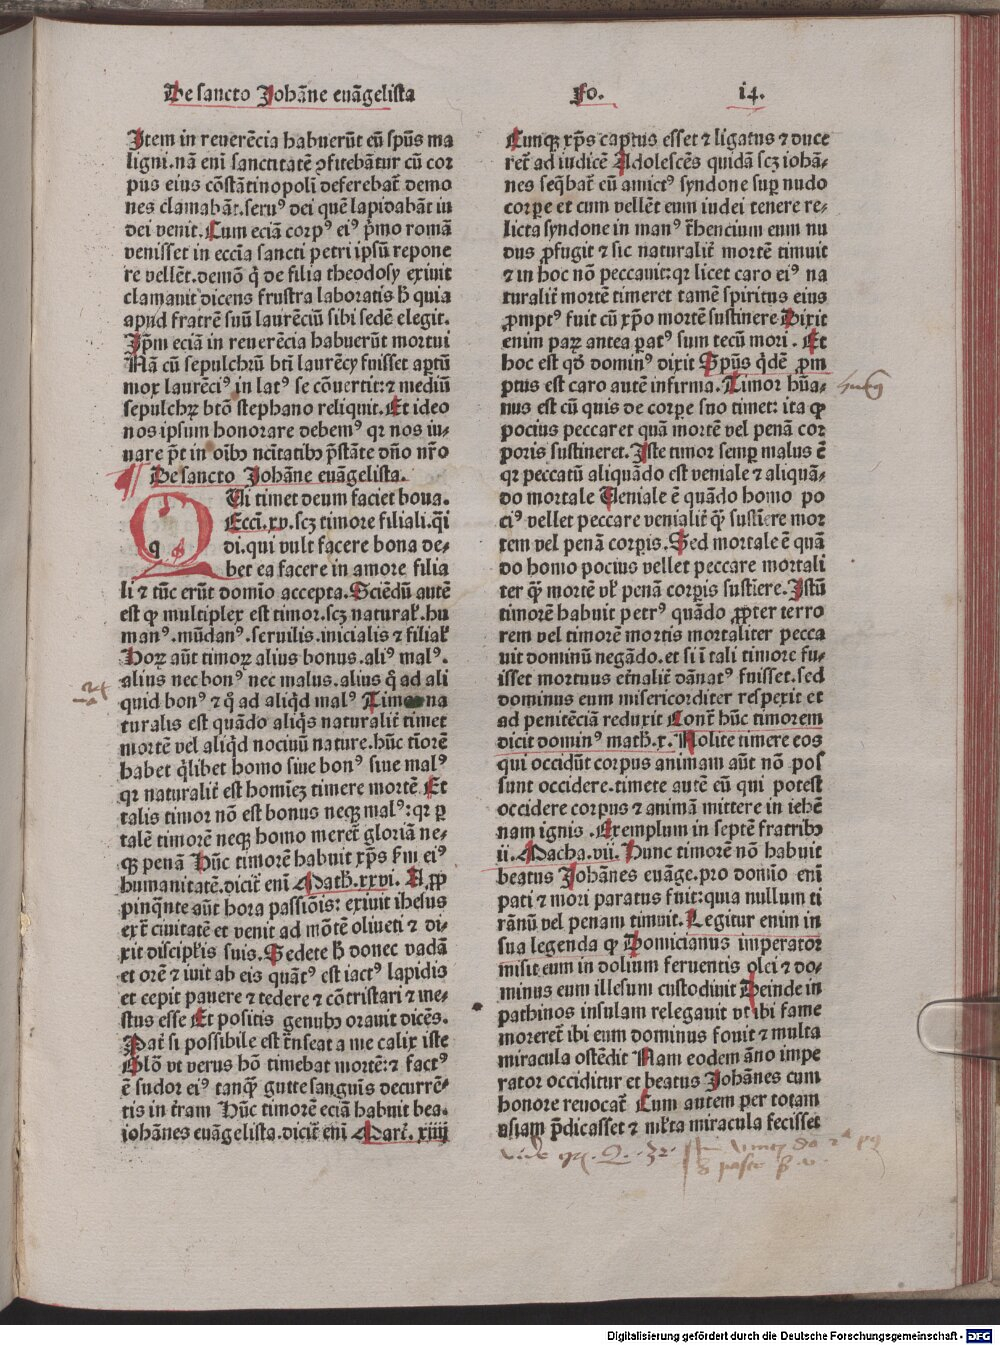 De sancto Johāne euāgelista fo. i4.
Item in reuerēcia habuerūt eū spūs ma
ligni.nā eni sanctitatē ꝯfitebātur cū cor
pus eius cōstātinopoli deferebat̄ demo
nes clamabāt.seruꝰ dei quē lapidabāt iu
dei venit.Cum eciā corpꝰ eiꝰ p̄mo romā
venisset in eccīa sancti petri ipsū repone
re vellēt.demō q̄ de filia theodosy exiuit
clamauit dicens frustra laboratis h̄ quia
apud fratrē suū laurēciū sibi sedē elegit.
Ip̄m eciā in reuerēcia habuerūt mortui
Nā cū sepulchrū bti laurēcy fuisset aptū
mox laurēciꝰ in latꝰ se cōuertit:⁊ mediū
sepulchꝝ btō stephano reliquit.Et ideo
nos ipsum honorare debemꝰ qꝛ nos iu-
uare pt̄ in oībꝫ ncītatibꝫ p̄stāte dño nr̄o
De sancto Johāne euāgelista.
Ui timet deum faciet bona.
Eccī.xv.scꝫ timore filiali.q̄i
q di.qui vult facere bona de-
bet ea facere in amore filia
li ⁊ tūc erūt domio accepta.Sciēdū autē
est ꝙ multiplex est timor.scꝫ natural̄.hu
manꝰ.mūdanꝰ.seruilis.inicialis ⁊ filial̄
Hoꝝ aūt timoꝝ alius bonus.aliꝰ malꝰ.
alius nec bonꝰ nec malus.alius q̄ ad ali
quid bonꝰ ⁊ q̄ ad aliq̄d malꝰ Timor na
turalis est quādo aliq̄s naturalit̄ timet
mortē vel aliq̄d nociuū nature.hūc tiorē
habet q̄libet homo siue bonꝰ siue malꝰ
qꝛ naturalit̄ est homīeꝫ timere mortē Et
talis timor nō est bonus neqꝫ malꝰ:qꝛ ꝑ
talē timorē neqꝫ homo meret̄ gloriā ne-
qꝫ penā Hūc timorē habuit xp̄s ẜm eiꝰ
humanitatē.dicit̄ eni Math.xxvi. Appro
pinq̄nte aūt hora passiōis: exiuit ihesus
ext̄ ciuitatē et venit ad mōtē oliueti ⁊ di-
xit discipl̄is suis.Sedete h̄ donec vadā
et orē ⁊ iuit ab eis quātꝰ est iactꝰ lapidis
et cepit pauere ⁊ tedere ⁊ cōtristari ⁊ me-
stus esse Et positis genubꝫ orauit dicēs.
Pat̄ si possibile est t̄nseat a me calix iste
Olō vt verus hō timebat mortē:⁊ factꝰ
ē sudor eiꝰ tanq̄ gutte sanguis decurrē-
tis in t̄ram Hūc timorē eciā habuit bea.
iohānes euāgelista.dicit̄ eni Marc̄.xiiij
Cunqꝫ xp̄s captus esset ⁊ ligatus ⁊ duce
ret̄ ad iudicē Adolescēs quidā scꝫ iohā-
nes seq̄bat̄ cū amictꝰ syndone suꝑ nudo
corpe et cum vellēt eum iudei tenere re-
licta syndone in manꝰ t̄hencium eum nu
dus ꝓfugit ⁊ sic naturalit̄ mortē timuit
⁊ in hoc nō peccauit:qꝛ licet caro eiꝰ na
turalit̄ mortē timeret tamē spiritus eius
ꝓmptꝰ fuit cū xp̄o mortē sustinere Dixit
enim paꝝ antea ꝑatꝰ sum tecū mori . Et
hoc est qd̄ dominꝰ dixit Spūs q̄dē ꝓm
ptus est caro autē infirma.Timor hūa-
nus est cū quis de corpe suo timet: ita ꝙ
pocius peccaret quā mortē vel penā cor
poris sustineret.Iste timor semꝑ malus ē
qꝛ peccatū aliquādo est veniale ⁊ aliquā-
do mortale Veniale ē quādo homo po
ciꝰ vellet peccare venialit̄ q̄ sustiere mor
tem vel penā corpis.Sed mortale ē quā
do homo pocius vellet peccare mortali
ter q̄ mortē vl̄ penā corpis sustiere.Istū
timorē habuit petrꝰ quādo ꝓpter terro
rem vel timorē mortis mortaliter pecca
uit dominū negādo.et si ī tali timore fu-
isset mortuus et̄nalit̄ dānatꝰ fuisset.sed
dominus eum misericorditer respexit et
ad penitēciā reduxit Cont̄ hūc timorem
dicit dominꝰ math.x.Nolite timere eos
qui occidūt corpus animam aūt nō pos
sunt occidere.timete autē eū qui potest
occidere corpus ⁊ animā mittere in iehē
nam ignis .Exemplum in septē fratribꝫ
ii.Macha.vii.Hunc timorē nō habuit
beatus Johānes euāge.pro domīo eni
pati ⁊ mori paratus fuit:quia nullum ti
rānū vel penam timuit.Legitur enim in
sua legenda ꝙ Domicianus imperator
misit eum in dolium feruentis olei ⁊ do-
minus eum illesum custodiuit Deinde in
pathinos insulam relegauit vt ibi fame
moreret̄ ibi eum dominus fouit ⁊ multa
miracula ostēdit Nam eodem āno impe
rator occiditur et beatus Johānes cum
honore reuocat̄ Cum autem per totam
asiam p̄dicasset ⁊ ml̄ta miracula fecisset